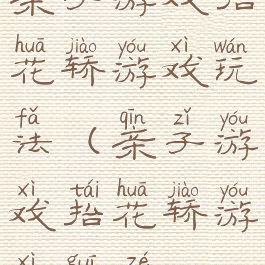 亲子游戏抬
huā jiào yóu xì wán
花轿游戏玩
fǎ qīn zǐ yóu
法(亲子游
xì tái huā jiào yóu
戏抬花轿游
xì guī zé